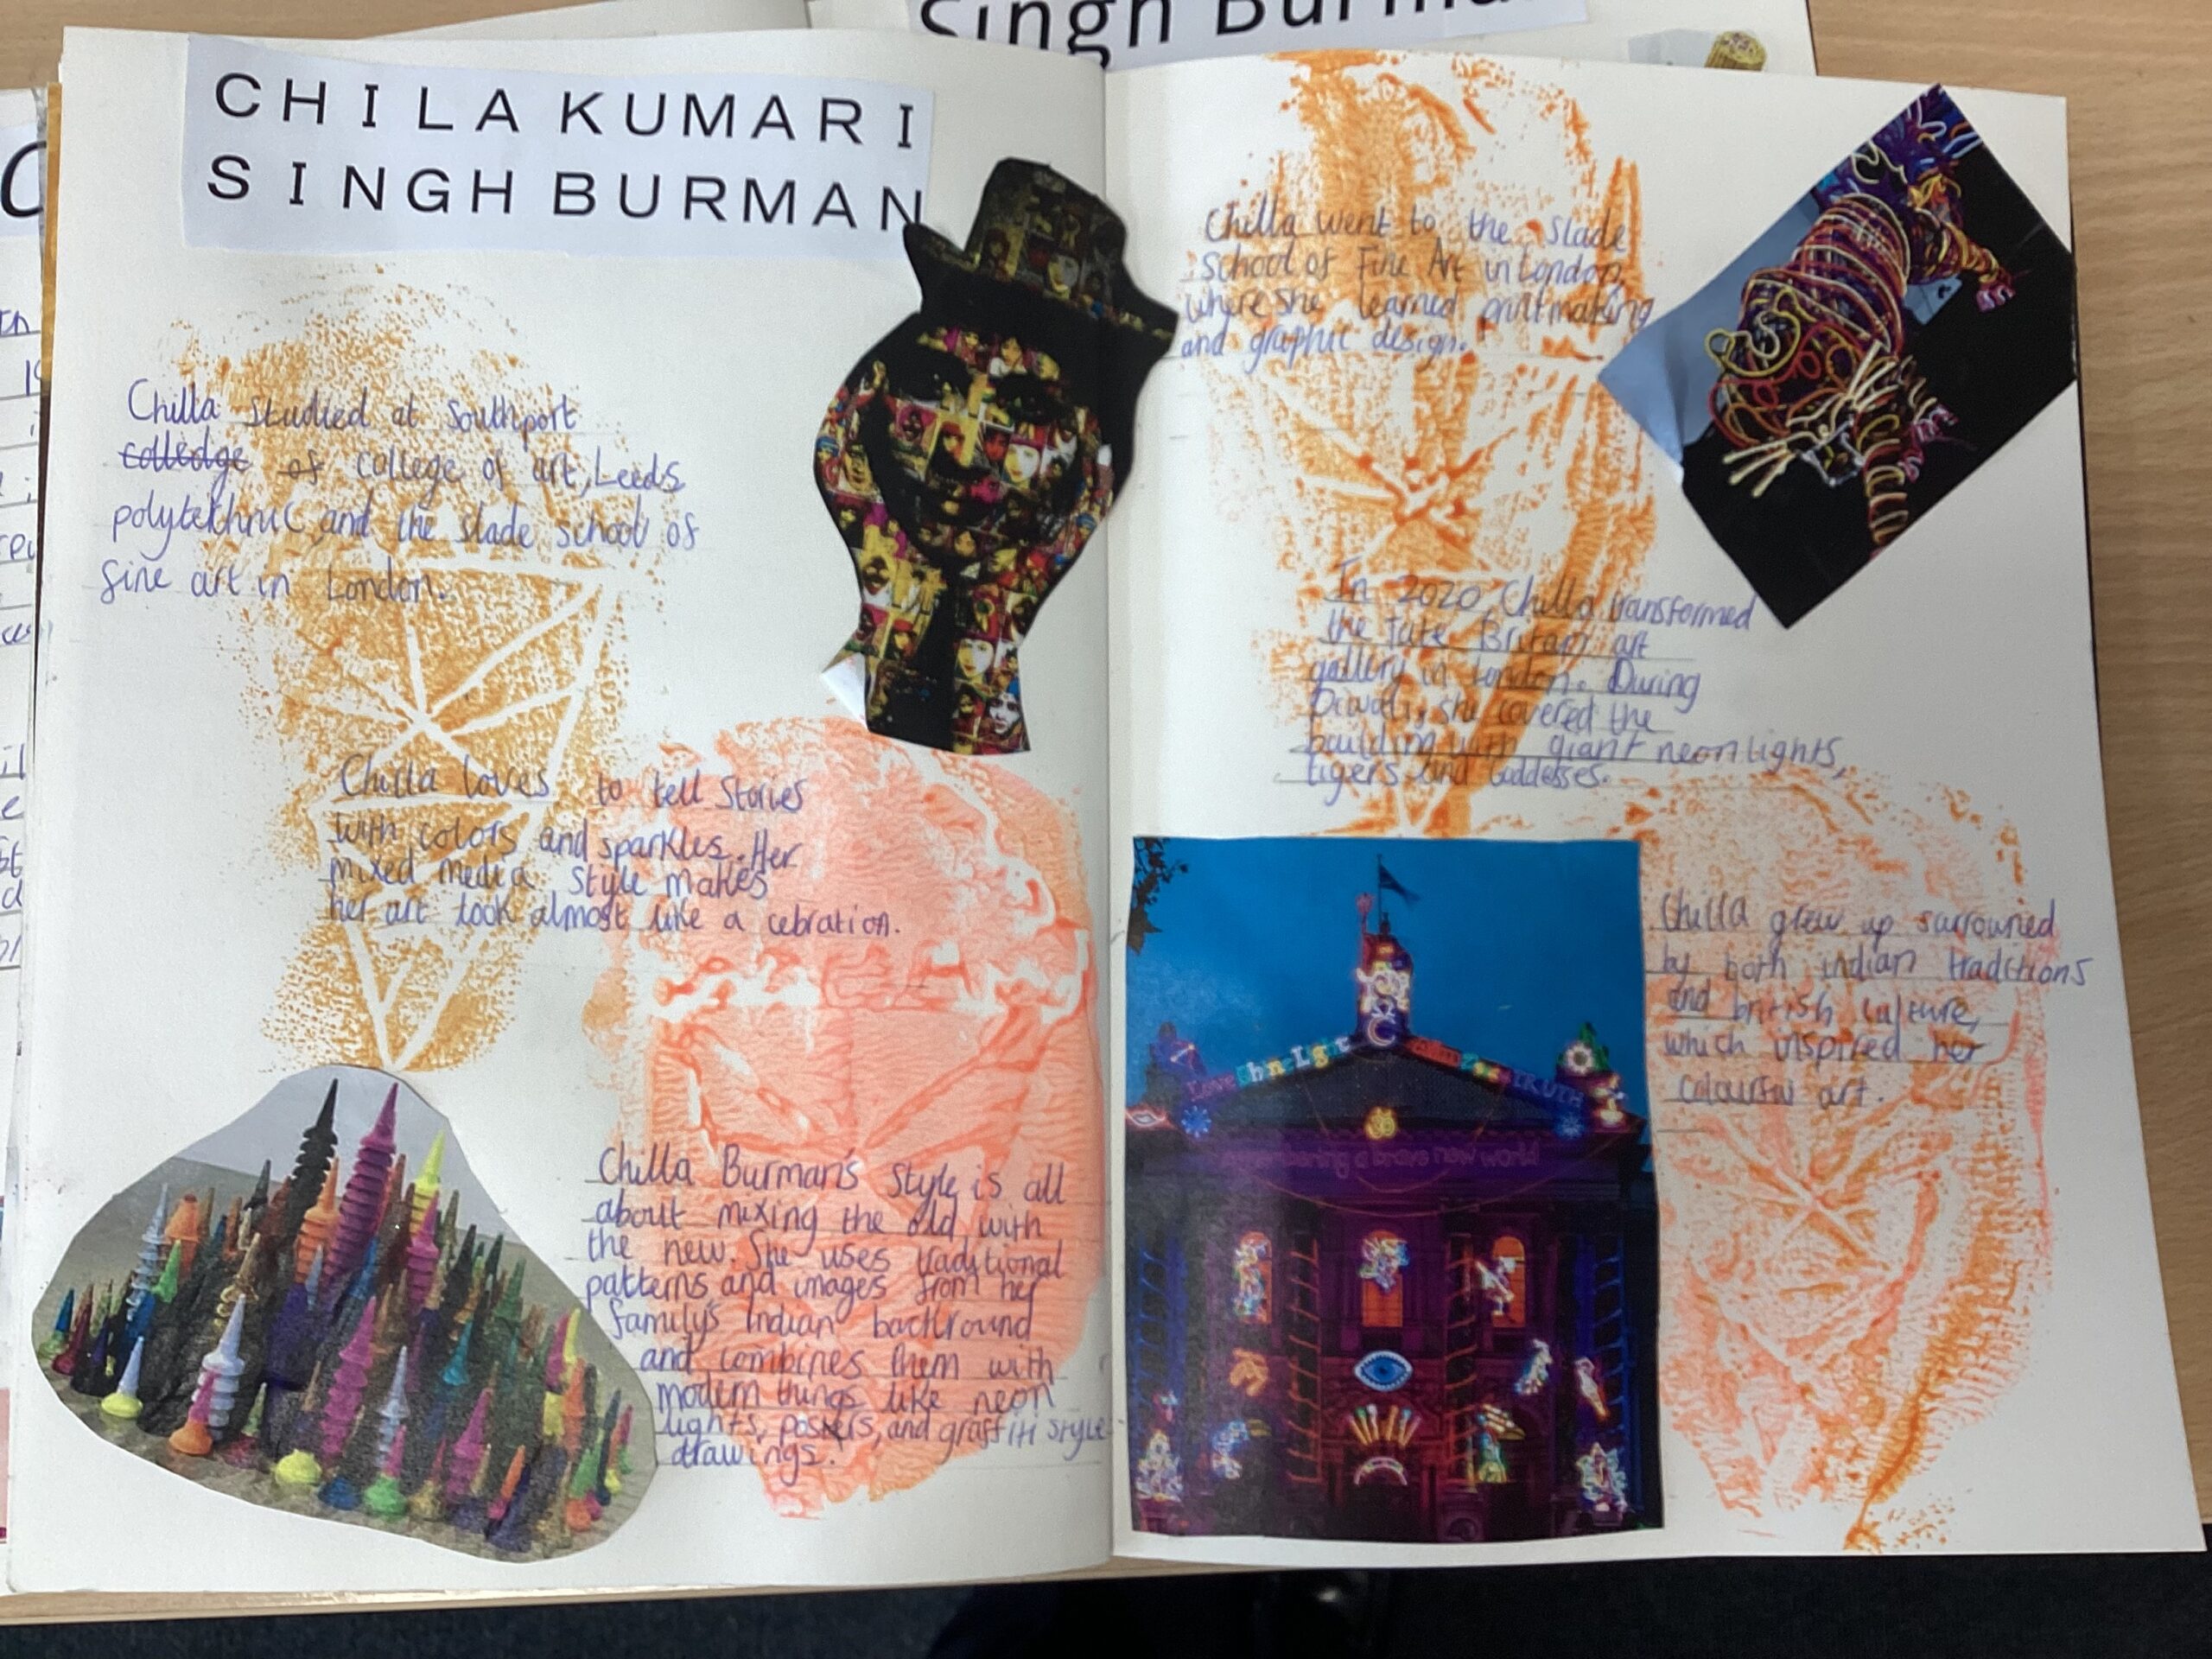 Singh Burma
CHILA KUMARI
SINGH BURMAN
Chilla studied at Southport
colledge of college of art, Leeds
polytekhnic, and the slade school of
fine art in London.
Chilla loves to tell stories
with colors and sparkles. Her
mixed media style makes
her art look almost like a cebration.
Chilla Burman's style is all
about mixing the old with
the new. She uses traditional
patterns and images from her
family's Indian backround
and combines them with
modern things like neon
lights, posters, and graffiti style
drawings.
Chilla went to the slade
school of Fine Art in London,
where she learned printmaking
and graphic design.
In 2020, Chilla transformed
the Tate Britain art
gallery in London. During
Diwali, she covered the
building with giant neon lights,
tigers and Goddesses.
Love Shine Light TRUTH
remembering a brave new world
Chilla grew up surrowned
by both indian traditions
and british culture,
which inspired her
colourful art.